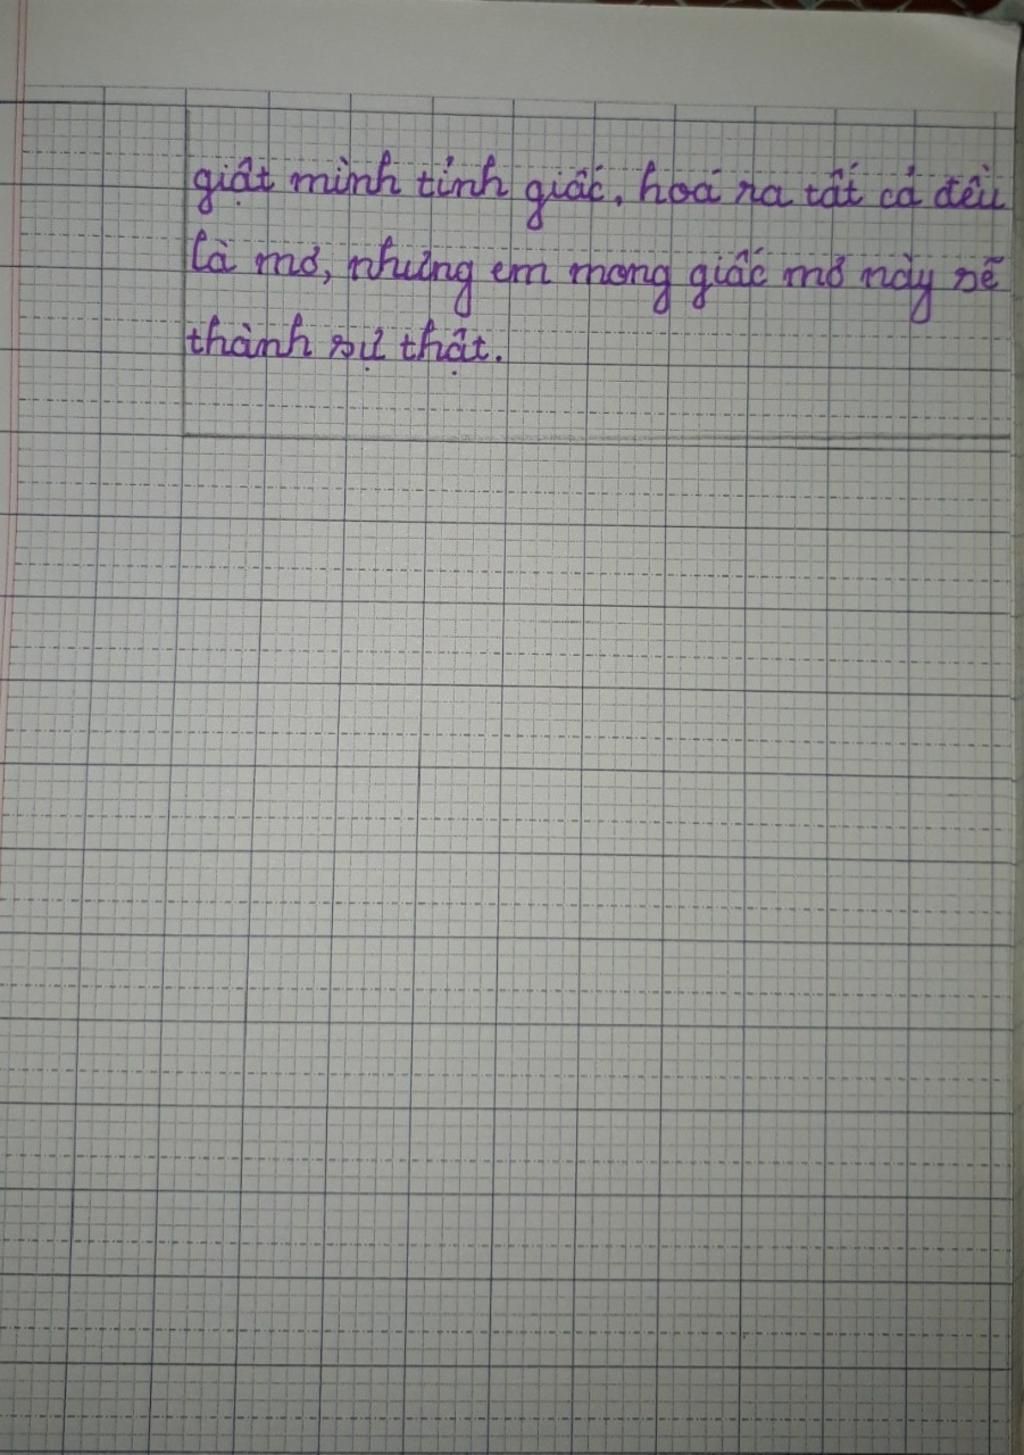 giật mình tỉnh giấc, hoá ra tất cả đều
là mơ, nhưng em mong giấc mơ này sẽ
thành sự thật.